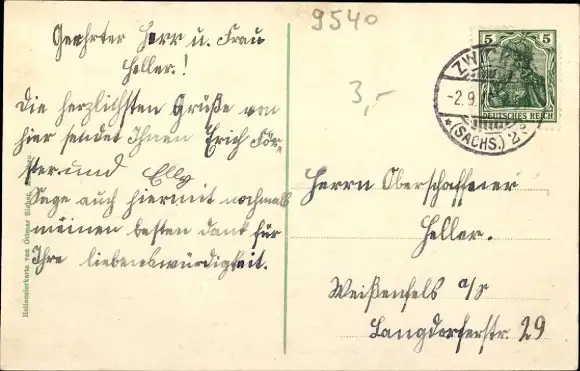 Geehrter Herr u. Frau
Heller!
Die herzlichsten Grüße von
hier sendet Ihnen Erich För-
ster und Elly
Sage auch hiermit nochmals
meinen besten Dank für
Ihre liebenswürdigkeit.
Heliocolorkarte von Ottmar Zieher,
9540
3,-
5 5
DEUTSCHES REICH
ZWICK
-2.9.
*(SACHS.) 2
Herrn Oberschaffner
Heller.
Weißenfels a/S
Langdorferstr. 29